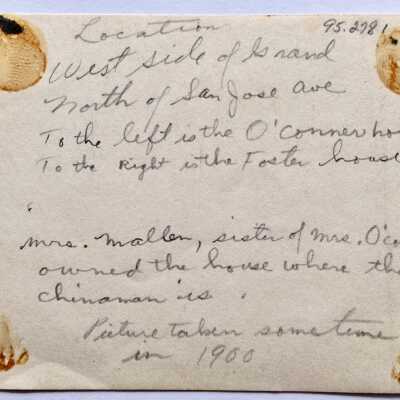 95.278 1
Location
West side of Grand
North of San Jose Ave
To the left is the O'conner hou
To the Right is the Foster house
"
Mrs. Mallen, sister of Mrs. O'co
owned the house where the
chinaman is.
Picture taken sometime
in 1900